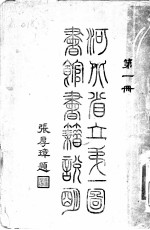 第一冊
河北省立第一圖
書館書籍說明
張厚璋題